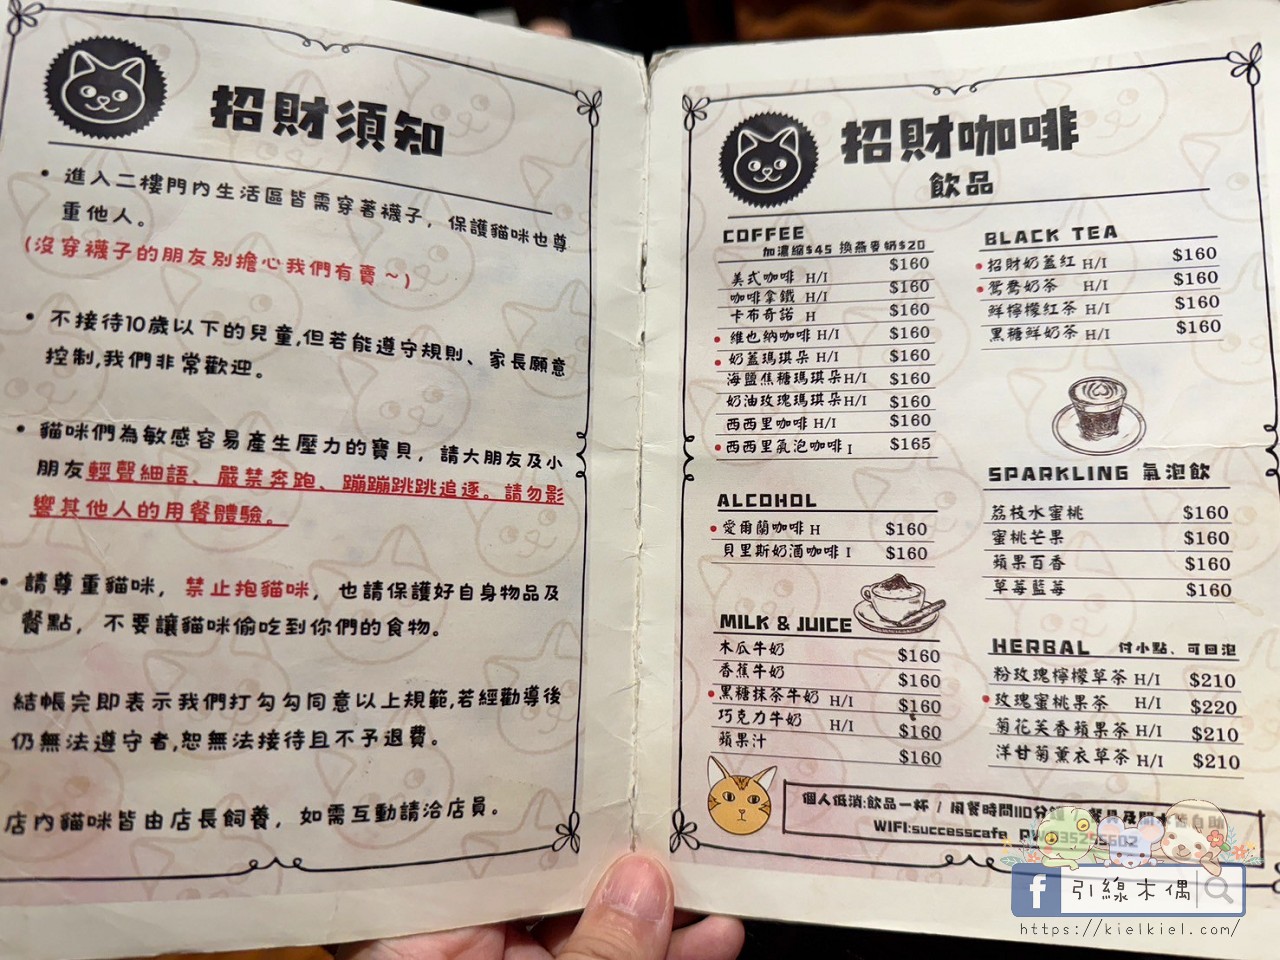 招財須知
• 進入二樓門內生活區皆需穿著襪子，保護貓咪也尊
重他人。
(沒穿襪子的朋友別擔心我們有賣～)
• 不接待10歲以下的兒童,但若能遵守規則、家長願意
控制,我們非常歡迎。
• 貓咪們為敏感容易產生壓力的寶貝，請大朋友及小
朋友輕聲細語、嚴禁奔跑、蹦蹦跳跳追逐。請勿影
響其他人的用餐體驗。
• 請尊重貓咪，禁止抱貓咪，也請保護好自身物品及
餐點，不要讓貓咪偷吃到你們的食物。
結帳完即表示我們打勾勾同意以上規範,若經勸導後
仍無法遵守者,恕無法接待且不予退費。
店內貓咪皆由店長飼養，如需互動請洽店員。
招財咖啡
飲品
COFFEE
加濃縮$45 換燕麥奶$20
美式咖啡 H/I $160
咖啡拿鐵 H/I $160
卡布奇諾 H $160
• 維也納咖啡 H/I $160
• 奶蓋瑪琪朵 H/I $160
海鹽焦糖瑪琪朵H/I $160
奶油玫瑰瑪琪朵H/I $160
西西里咖啡 H/I $160
• 西西里氣泡咖啡 I $165
ALCOHOL
• 愛爾蘭咖啡 H $160
貝里斯奶酒咖啡 I $160
MILK & JUICE
木瓜牛奶 $160
香蕉牛奶 $160
• 黑糖抹茶牛奶 H/I $160
巧克力牛奶 H/I $160
蘋果汁 $160
BLACK TEA
• 招財奶蓋紅 H/I $160
• 鴛鴦奶茶 H/I $160
鮮檸檬紅茶 H/I $160
黑糖鮮奶茶 H/I $160
SPARKLING 氣泡飲
荔枝水蜜桃 $160
蜜桃芒果 $160
蘋果百香 $160
草莓藍莓 $160
HERBAL 付小點、可回泡
粉玫瑰檸檬草茶 H/I $210
• 玫瑰蜜桃果茶 H/I $220
菊花芙香蘋果茶 H/I $210
洋甘菊薰衣草茶 H/I $210
個人低消:飲品一杯 / 用餐時間110分鐘
WIFI:successcafe
f 引線木偶
https://kielkiel.com/